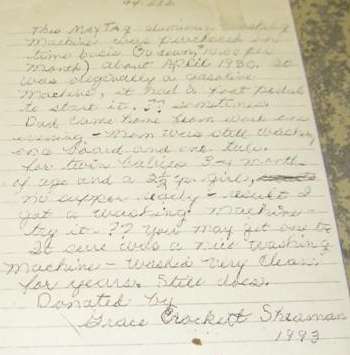 This MayTag aluminum washing
Machine was purchased on
time basis (10 down, 10.00 per
Month) about April 1930. It
was originally a gasoline
Machine, it had a foot pedal
to start it. ?? sometimes
Dad came home from work one
evening - Mom was still washing
on a board and one tub.
for twin babies 3-4 months
of age and a 2½ yr girl,
no supper ready - result I
got a washing Machine -
try it - ?? you may get one to
It sure was a nice washing
Machine - washed very clean
for years. Still does.
Donated by
Grace Crockett Sherman
1993